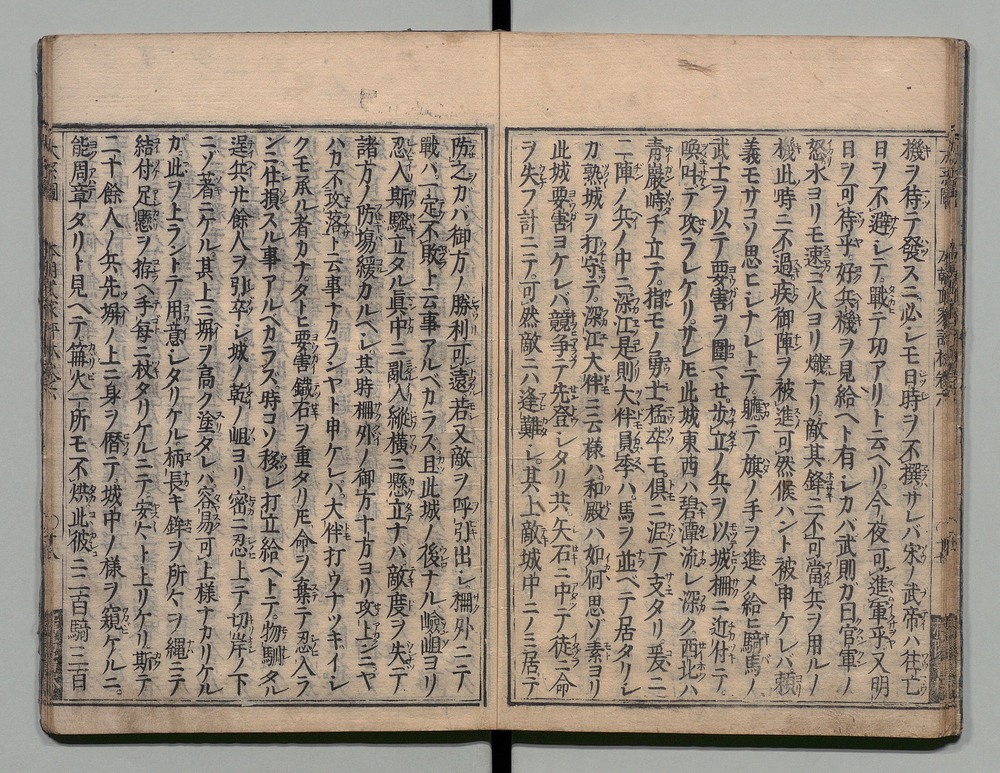 機ヲ待テ發スニ必シモ日時ヲ不撰サレバ宋ノ武帝ハ往亡
日ヲ不避シテ戰テ功アリト云ヘリ。今夜可進軍乎。又明
日ヲ可待乎。好兵機ヲ見給ヘト有シカバ武則ガ曰官軍ノ
怒水ヨリモ速ニ火ヨリ熾ナリ。敵其鋒ニ不可當兵ヲ用ルノ
機此時ニ不過疾御陣ヲ被進可然候ハント被申ケレバ頼
義モサコソ思ヒシナレトテ軈テ旗ノ手ヲ進メ給ヒ騎馬ノ
武士ヲ以テ要害ヲ圍マせ。歩立ノ兵ヲ以城柵ニ近付ニテ。
喚叫テ攻ラレケリサレ𪜈此城東西ハ碧潭流レ深ク西北ハ
青巖峙チ立テ。指モノ勇士猛卒モ。倶ニ泥テ支タリ。爰ニ
二陣ノ兵ノ中ニ。深江是則大伴員季ハ。馬ヲ並ベテ居タリシ
ガ熟城ヲ打守テ。深江大伴ニ云様ハ和殿ハ如何思ゾ素ヨリ
此城要害ヨケレバ競争テ先登レタリ共。矢石ニ中テ徒ニ命
ヲ失フ計ニテ。可然敵ニハ逢難シ。其上敵城中ニノミ居テ
防之カバ御方ノ勝利可遠若又敵ヲ呼引出シ柵外ニテ
戰ハ一定不敗ト云事アルベカラス。且此城ノ後ナル嶮岨ヨリ
忍入斯騒立タル眞中ニ亂入縱横ニ懸立ナバ敵度ヲ失テ
諸方ノ防場緩カルヘシ。其時柵外ノ御方十方ヨリ攻上ンニヤ
ハカ不攻落ト云事ナカランヤト申ケレバ。大伴打ウナツキ。イシ
クモ承ル者カナタトヒ要害鐵石ヲ重タリ𪜈。命ヲ棄テ忍入ラ
ンニ仕損スル事アルベカラズ時コソ移レ打立給ヘトテ。物馴タル
逞兵廿餘人ヲ引卒シ城ノ乾ノ岨ヨリ。密ニ忍上テ切岸ノ下
ニソ著ニケル。其上ニ塀ヲ高ク塗タレハ容易可上様ナカリケル
ガ。此ヲ上ラントテ用意シタリケル柄長キ鉾ヲ所々ヲ縄ニテ
結付足懸ヲ拵ヘ手毎ニ杖タリケルニテ。安々ト上リケリ。斯テ
二十餘人ノ兵先塀ノ上ニ身ヲ僭テ。城中ノ様ヲ窺ケルニ。
能周章タリト見ヘテ。篝火一所モ不烘此彼ニ二百騎三百